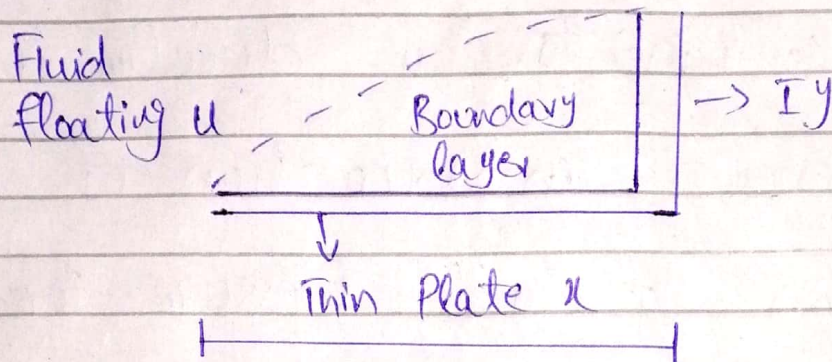 Fluid
floating u
Boundary
layer
-> Iy
Thin Plate x